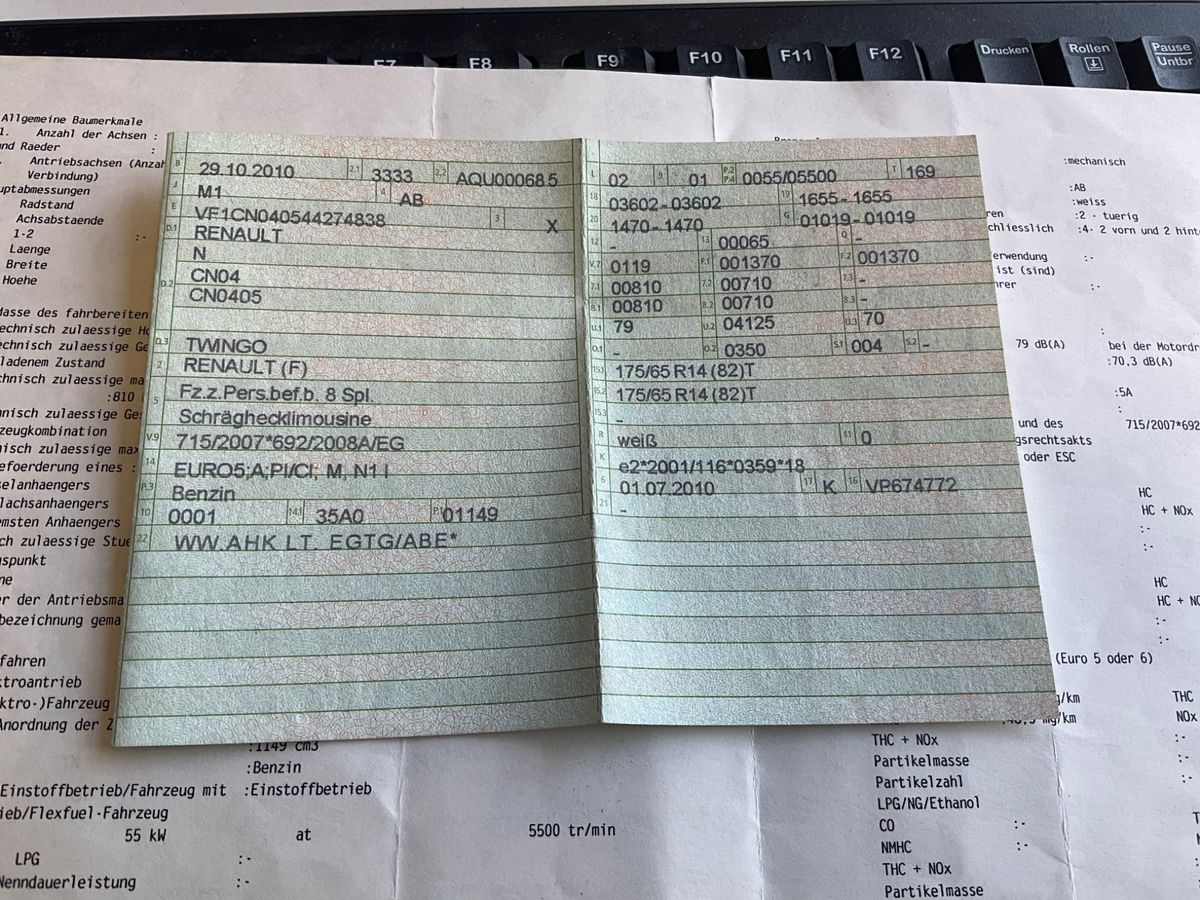 F7 F8 F9 F10 F11 F12 Drucken Rollen Pause Untbr
Allgemeine Baumerkmale
1. Anzahl der Achsen :
und Raeder :
Antriebsachsen (Anzah
Verbindung)
uptabmessungen
Radstand
Achsabstaende
1-2 :-
Laenge
Breite
Hoehe
asse des fahrbereiten
echnisch zulaessige Hö
echnisch zulaessige Ge
ladenem Zustand
chnisch zulaessige ma
:810
hnisch zulaessige Ges
zeugkombination
nisch zulaessige max
efoerderung eines :
selanhaengers
lachsanhaengers
emsten Anhaengers
ch zulaessige Stue
gspunkt
ne
er der Antriebsma
bezeichnung gema
fahren
ktroantrieb
ktro-)Fahrzeug
Anordnung der Z
B 29.10.2010 2.1 3333 2.2 AQU000685
J M1 4 AB
E VF1CN040544274838 3 X
D.1 RENAULT
N
D.2 CN04
CN0405
D.3 TWINGO
2 RENAULT (F)
5 Fz.z.Pers.bef.b. 8 Spl.
Schräghecklimousine
V.9 715/2007*692/2008A/EG
14 EURO5;A;PI/CI; M, N1 I
P.3 Benzin
10 0001 14.1 35A0 P.1 01149
22 WW.AHK LT. EGTG/ABE*
L 02 9 01 P.2 P.4 0055/05500 T 169
18 03602-03602 19 1655-1655
20 1470-1470 G 01019-01019
12 - 13 00065 Q -
V.7 0119 F.1 001370 F.2 001370
7.1 00810 7.2 00710 7.3 -
8.1 00810 8.2 00710 8.3 -
U.1 79 U.2 04125 U.3 70
O.1 - O.2 0350 S.1 004 S.2 -
15.1 175/65 R14 (82)T
15.2 175/65 R14 (82)T
15.3 -
R weiß 11 0
K e2*2001/116*0359*18
6 01.07.2010 17 K 16 VP674772
21 -
:mechanisch
:AB
:weiss
ren :2 - tuerig
chliesslich :4- 2 vorn und 2 hinte
erwendung :-
ist (sind)
hrer :-
:
79 dB(A) bei der Motordre
:70,3 dB(A)
:5A
:
und des 715/2007*692
gsrechtsakts
oder ESC
HC
HC + NOx
:-
:-
HC
HC + NO
:-
:-
(Euro 5 oder 6)
g/km THC
mg/km NOx
:1149 cm3
:Benzin
Einstoffbetrieb/Fahrzeug mit :Einstoffbetrieb
ieb/Flexfuel-Fahrzeug
55 kW at 5500 tr/min
LPG :-
Nenndauerleistung :-
THC + NOx :-
Partikelmasse :-
Partikelzahl :-
LPG/NG/Ethanol
CO :-
NMHC :-
THC + NOx
Partikelmasse